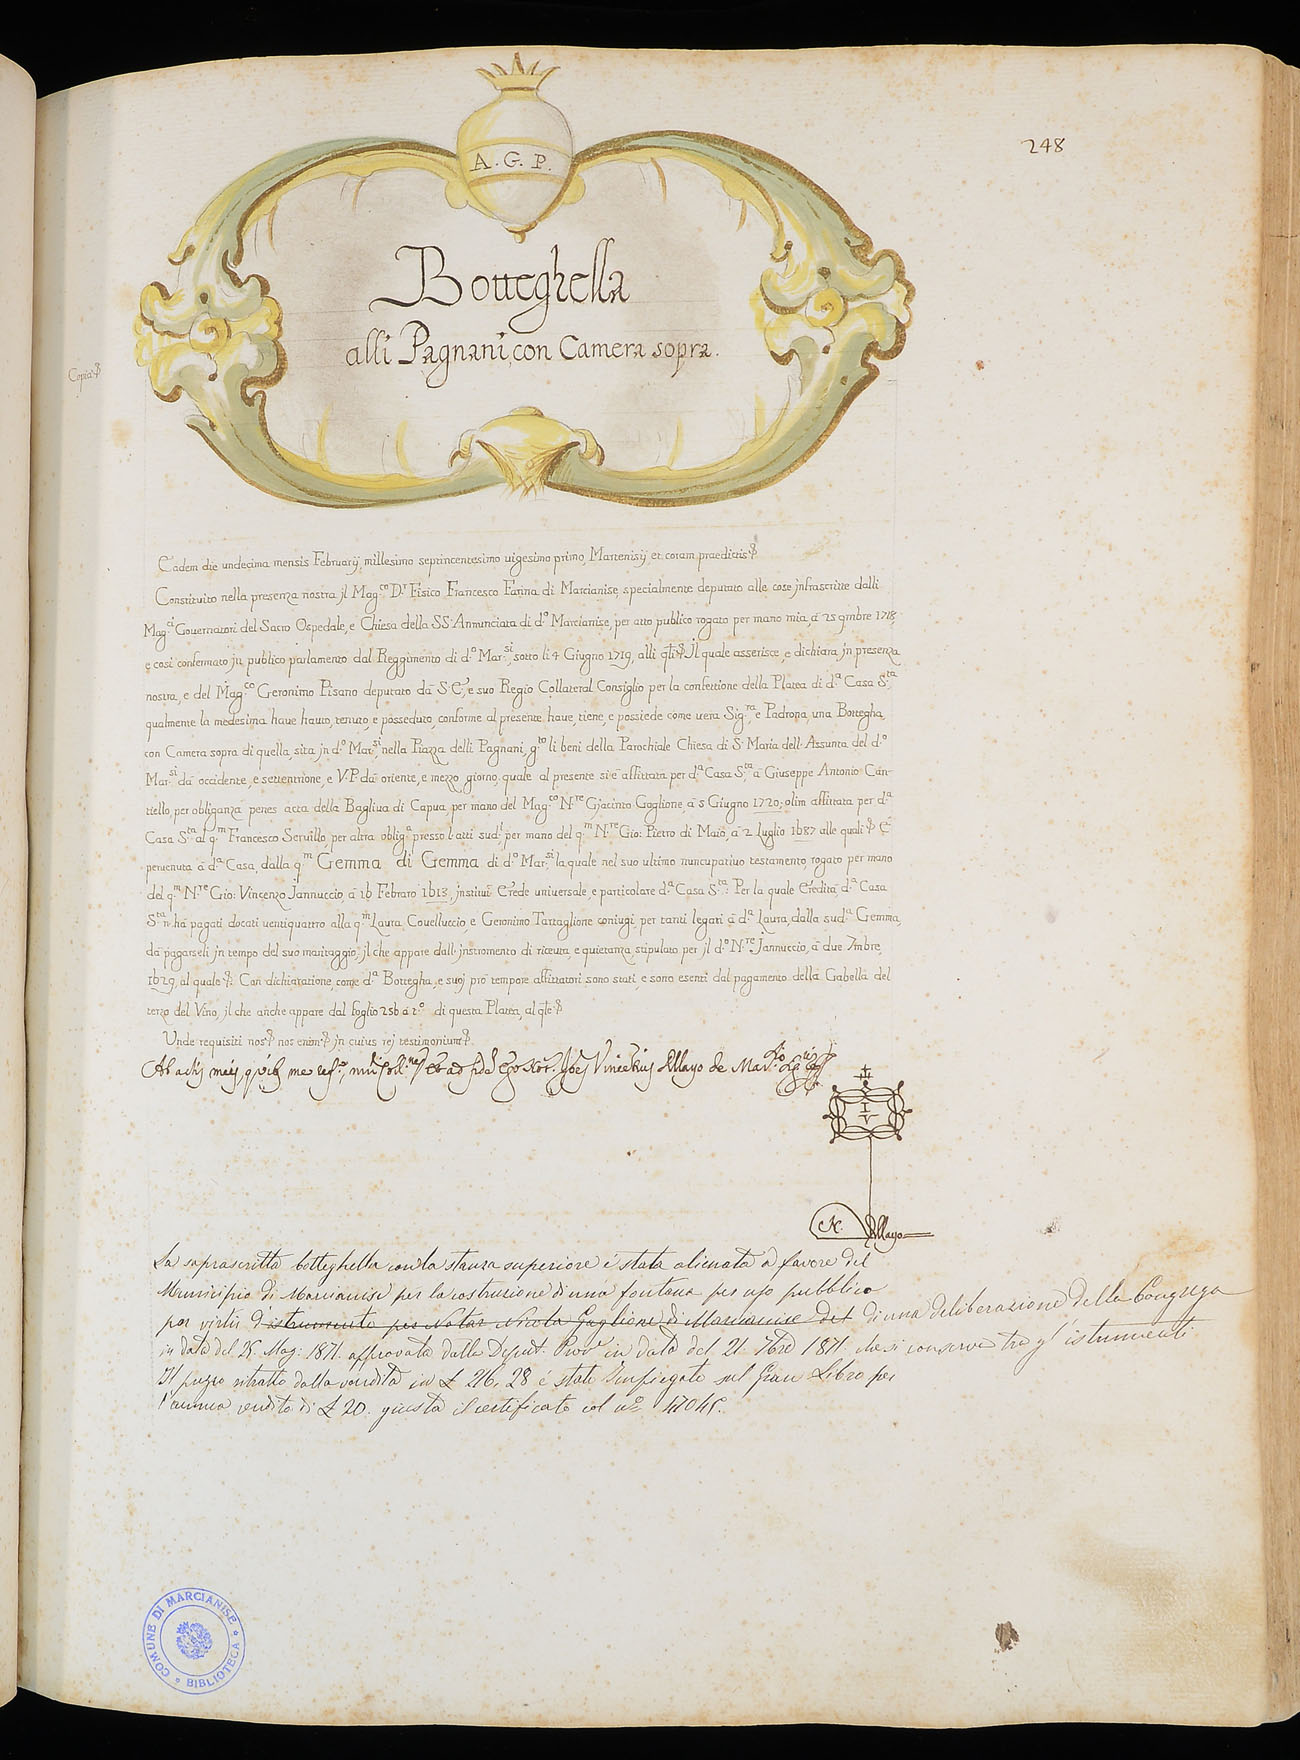 248
A. G. P.
Botteghella
alli Pagnani, con Camera sopra.
Copia
Eadem die undecima mensis Februarij, millesimo septincentesimo uigesimo primo, Martenisij et coram praedictis
Constituito nella presenza nostra jl Mag.co D.r Fisico Francesco Farina di Marcianise, specialmente deputato alle cose jnfrascritte dalli
Mag.ci Gouernatori del Sacro Ospedale, e Chiesa della SS. Annunciata di d.o Marcianise, per atto publico rogato per mano mia, à 25 9mbre 1718
e così confermato jn publico parlamento dal Reggimento di d.o Mar.si, sotto li 4 Giugno 1719, alli Jl quale asserisce, e dichiara jn presenza
nostra, e del Mag.co Geronimo Pisano deputato da S. E, e suo Regio Collateral Consiglio per la confettione della Platea di d.a Casa S.ta
qualmente la medesima haue hauto, tenuto, e posseduto, conforme al presente haue, tiene, e possiede come uera Sig.ra e Padrona, una Bottegha,
con Camera sopra di quella, sita jn d.o Mar.si, nella Piazza delli Pagnani, g.to li beni della Parochiale Chiesa di S. Maria dell' Assunta del d.o
Mar.si da occidente, e settentrione, e V.P da oriente, e mezzo giorno, quale al presente si è affittata per d.a Casa S.ta à Giuseppe Antonio Can-
tiello, per obliganza penes acta della Bagliua di Capua, per mano del Mag.co N.re Gjacinto Goglione, à 5 Giugno 1720; olim affittata per d.a
Casa S.ta al q.m Francesco Seruillo, per altra oblig.a presso l'atti sud.i per mano del q.m N.re Gio: Pietro di Maio, à 2 Luglio 1687 alle quali È
peruenuta à d.a Casa, dalla q.m Gemma di Gemma di d.o Mar.si, la quale nel suo ultimo nuncupatiuo testamento, rogato per mano
del q.m N.re Gio: Vincenzo Jannuccio, à 16 Febraro 1613, jnstituì Erede uniuersale, e particolare d.a Casa S.ta: Per la quale Eredità, d.a Casa
S.ta n'hà pagati docati uentiquattro alla q.m Laura Couelluccio e Geronimo Tartaglione coniugi, per tanti legati à d.a Laura, dalla sud.a Gemma,
da pagarseli jn tempo del suo maritaggio; jl che appare dall' jnstromento di riceuta, e quietanza, stipulato per jl d.o N.re Jannuccio, à due 7mbre
1629, al quale Con dichiarazione, come d.a Bottegha, e suoj pro tempore affittatori sono stati, e sono esenti dal pagamento della Gabella del
terzo del Vino, jl che anche appare dal foglio 256 à t.o di questa Platea, al
Unde requisiti nos nos enim jn cuius rej testimonium
Ab actis meis, et ad fidem ego Not. Vincentius Mayo de
I V
N. Mayo
La soprascritta botteghella con la stanza superiore è stata alienata a favore del
Municipio di Marcianise per la costruzione di una fontana per uso pubblico
per virtù d'istrumento per Notar Nicola Gaglione di Marcianise del di una deliberazione della Congrega
in data del 25 Mag: 1871. approvata dalla Deput. Prov. in data del 21 7bre 1871. che si conserva tra gl'istrumenti.
Il prezzo ritratto dalla vendita in £ 216, 28 è stato impiegato sul Gran Libro per
l'annua rendita di £ 20. giusta il certificato col n.o 47045.
COMUNE DI MARCIANISE
BIBLIOTECA